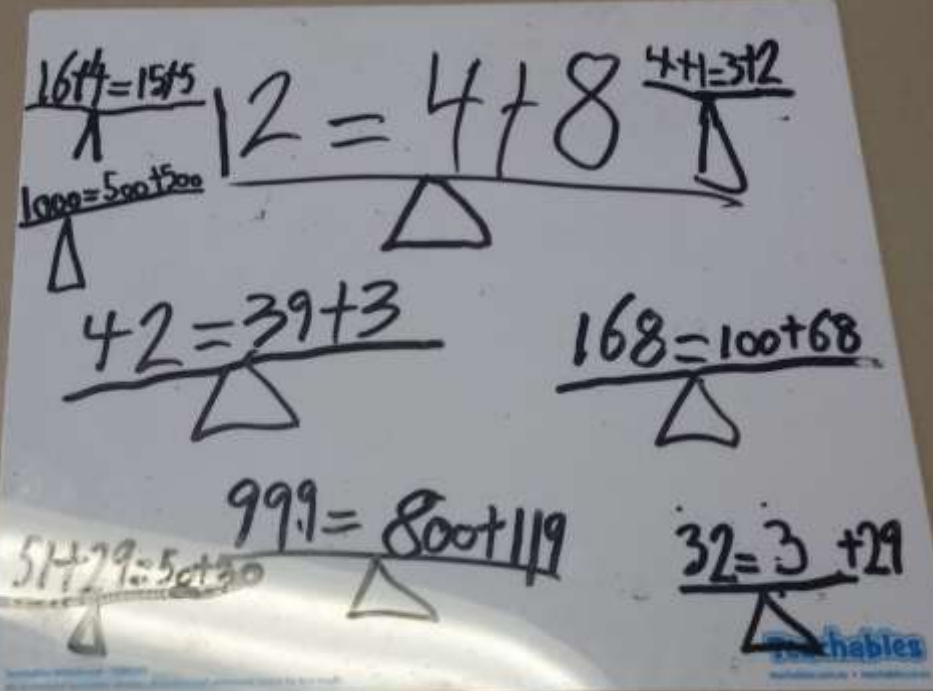 16+4=15+5
12=4+8
4+1=3+2
1000=500+500
42=39+3
168=100+68
999=800+119
51+29=50+30
32=3+29
Teachables